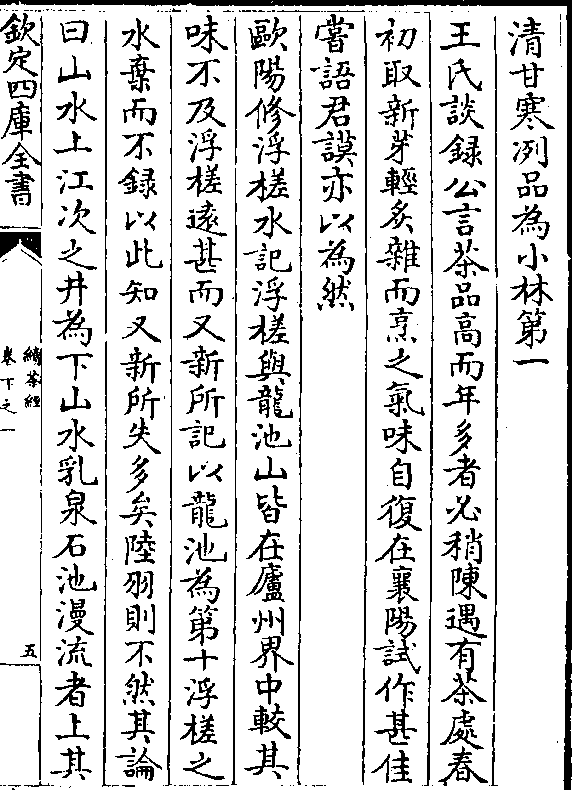 清甘寒冽品為小林第一
王氏談録公言茶品高而年多者必稍陳遇有茶處春
初取新芽輕炙雜而烹之氣味自復在襄陽試作甚佳
嘗語君謨亦以為然
歐陽修浮槎水記浮槎與龍池山皆在廬州界中較其
味不及浮槎遠甚而又新所記以龍池為第十浮槎之
水棄而不録以此知又新所失多矣陸羽則不然其論
曰山水上江次之井為下山水乳泉石池漫流者上其
欽定四庫全書
續茶經
卷下之一
五